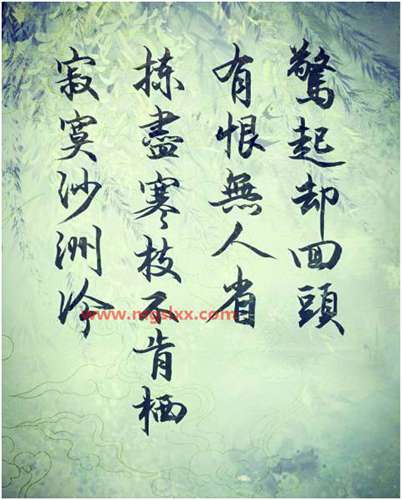 驚起却回頭
有恨無人省
揀盡寒枝不肯栖
寂寞沙洲冷
www.mgslxx.com